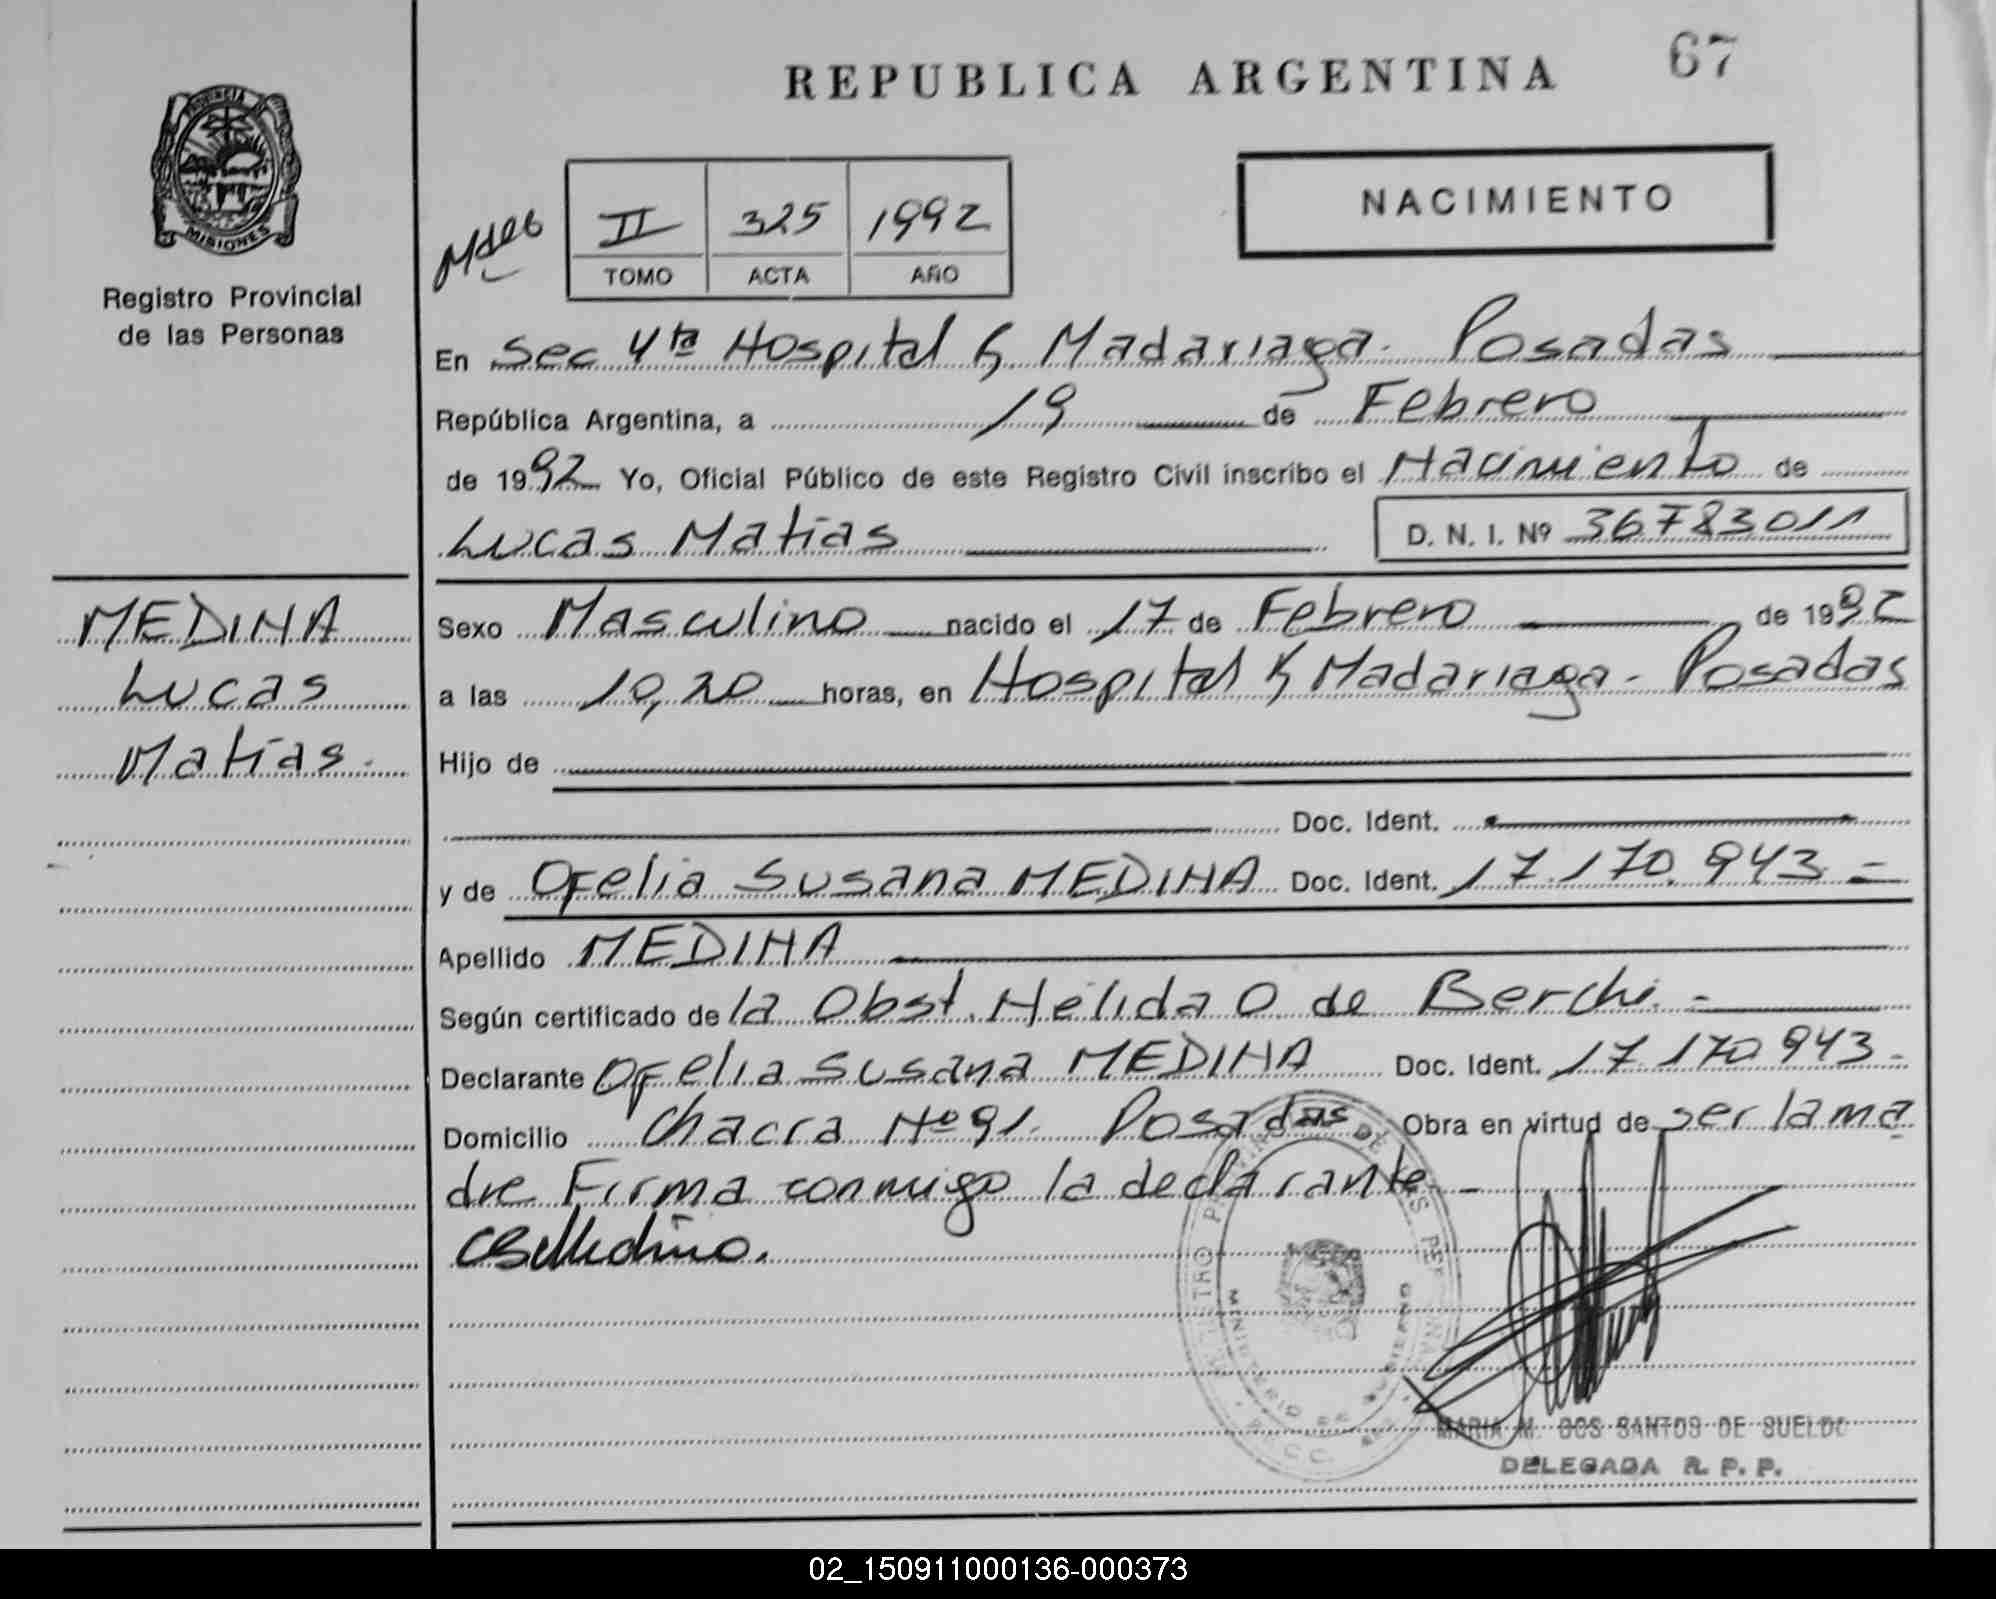 REPUBLICA ARGENTINA
67
PROVINCIA
MISIONES
Registro Provincial
de las Personas
II 325 1992
TOMO ACTA AÑO
NACIMIENTO
En Sec 4ta Hospital R Madariaga. Posadas
República Argentina, a 19 de Febrero
de 1992 Yo, Oficial Público de este Registro Civil inscribo el Nacimiento de
Lucas Matías D. N. I. Nº 36783011
MEDINA
Lucas
Matías.
Sexo Masculino nacido el 17 de Febrero de 1992
a las 10,20 horas, en Hospital R Madariaga - Posadas
Hijo de
Doc. Ident.
y de Ofelia Susana MEDINA Doc. Ident. 17.170.943 =
Apellido MEDINA
Según certificado de la Obst. Nélida O de Berchi. =
Declarante Ofelia Susana MEDINA Doc. Ident. 17.170.943 =
Domicilio Chacra Nº 91. Posadas Obra en virtud de ser la ma
dre Firma conmigo la declarante -
MINISTERIO DE GOBIERNO
MARIA M. DOS SANTOS DE SUELDO
DELEGADA R. P. P.
02_150911000136-000373